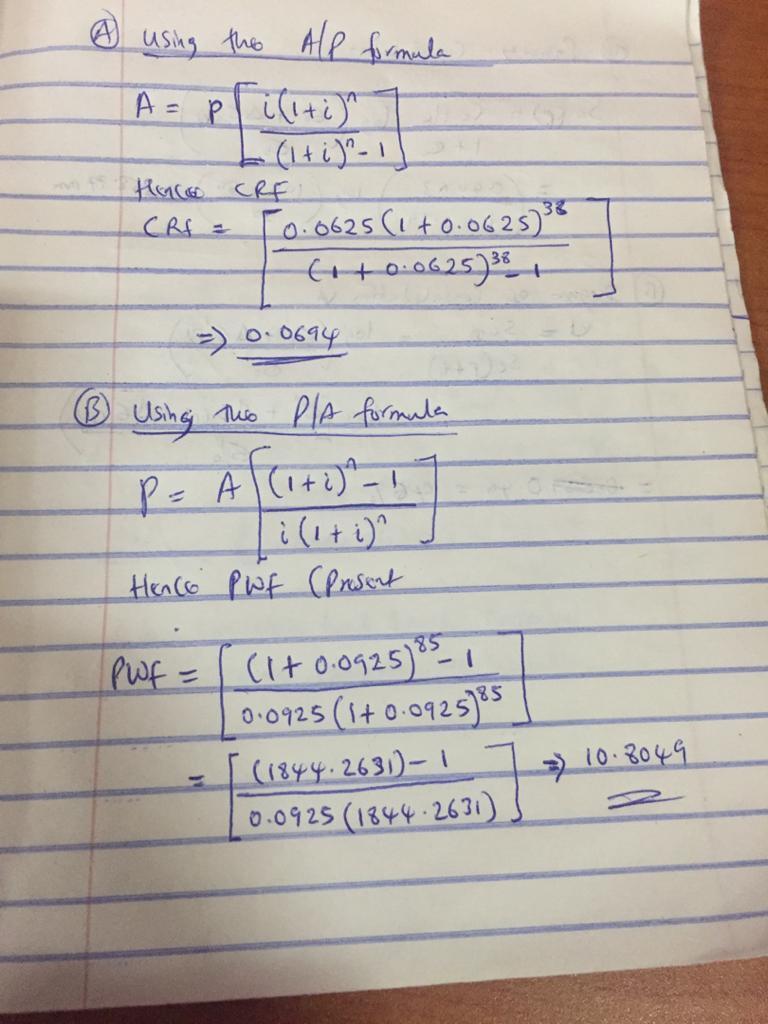 Ⓐ Using the A/P formula
A = P [ i(1+i)^n / (1+i)^n - 1 ]
Hence CRF
CRf = [ 0.0625(1+0.0625)^38 / (1+0.0625)^38 - 1 ]
=> 0.0694
Ⓑ Using the P/A formula
P = A [ (1+i)^n - 1 / i(1+i)^n ]
Hence PWF (Present
PWF = [ (1+0.0925)^85 - 1 / 0.0925(1+0.0925)^85 ]
= [ (1844.2631) - 1 / 0.0925(1844.2631) ] => 10.8049